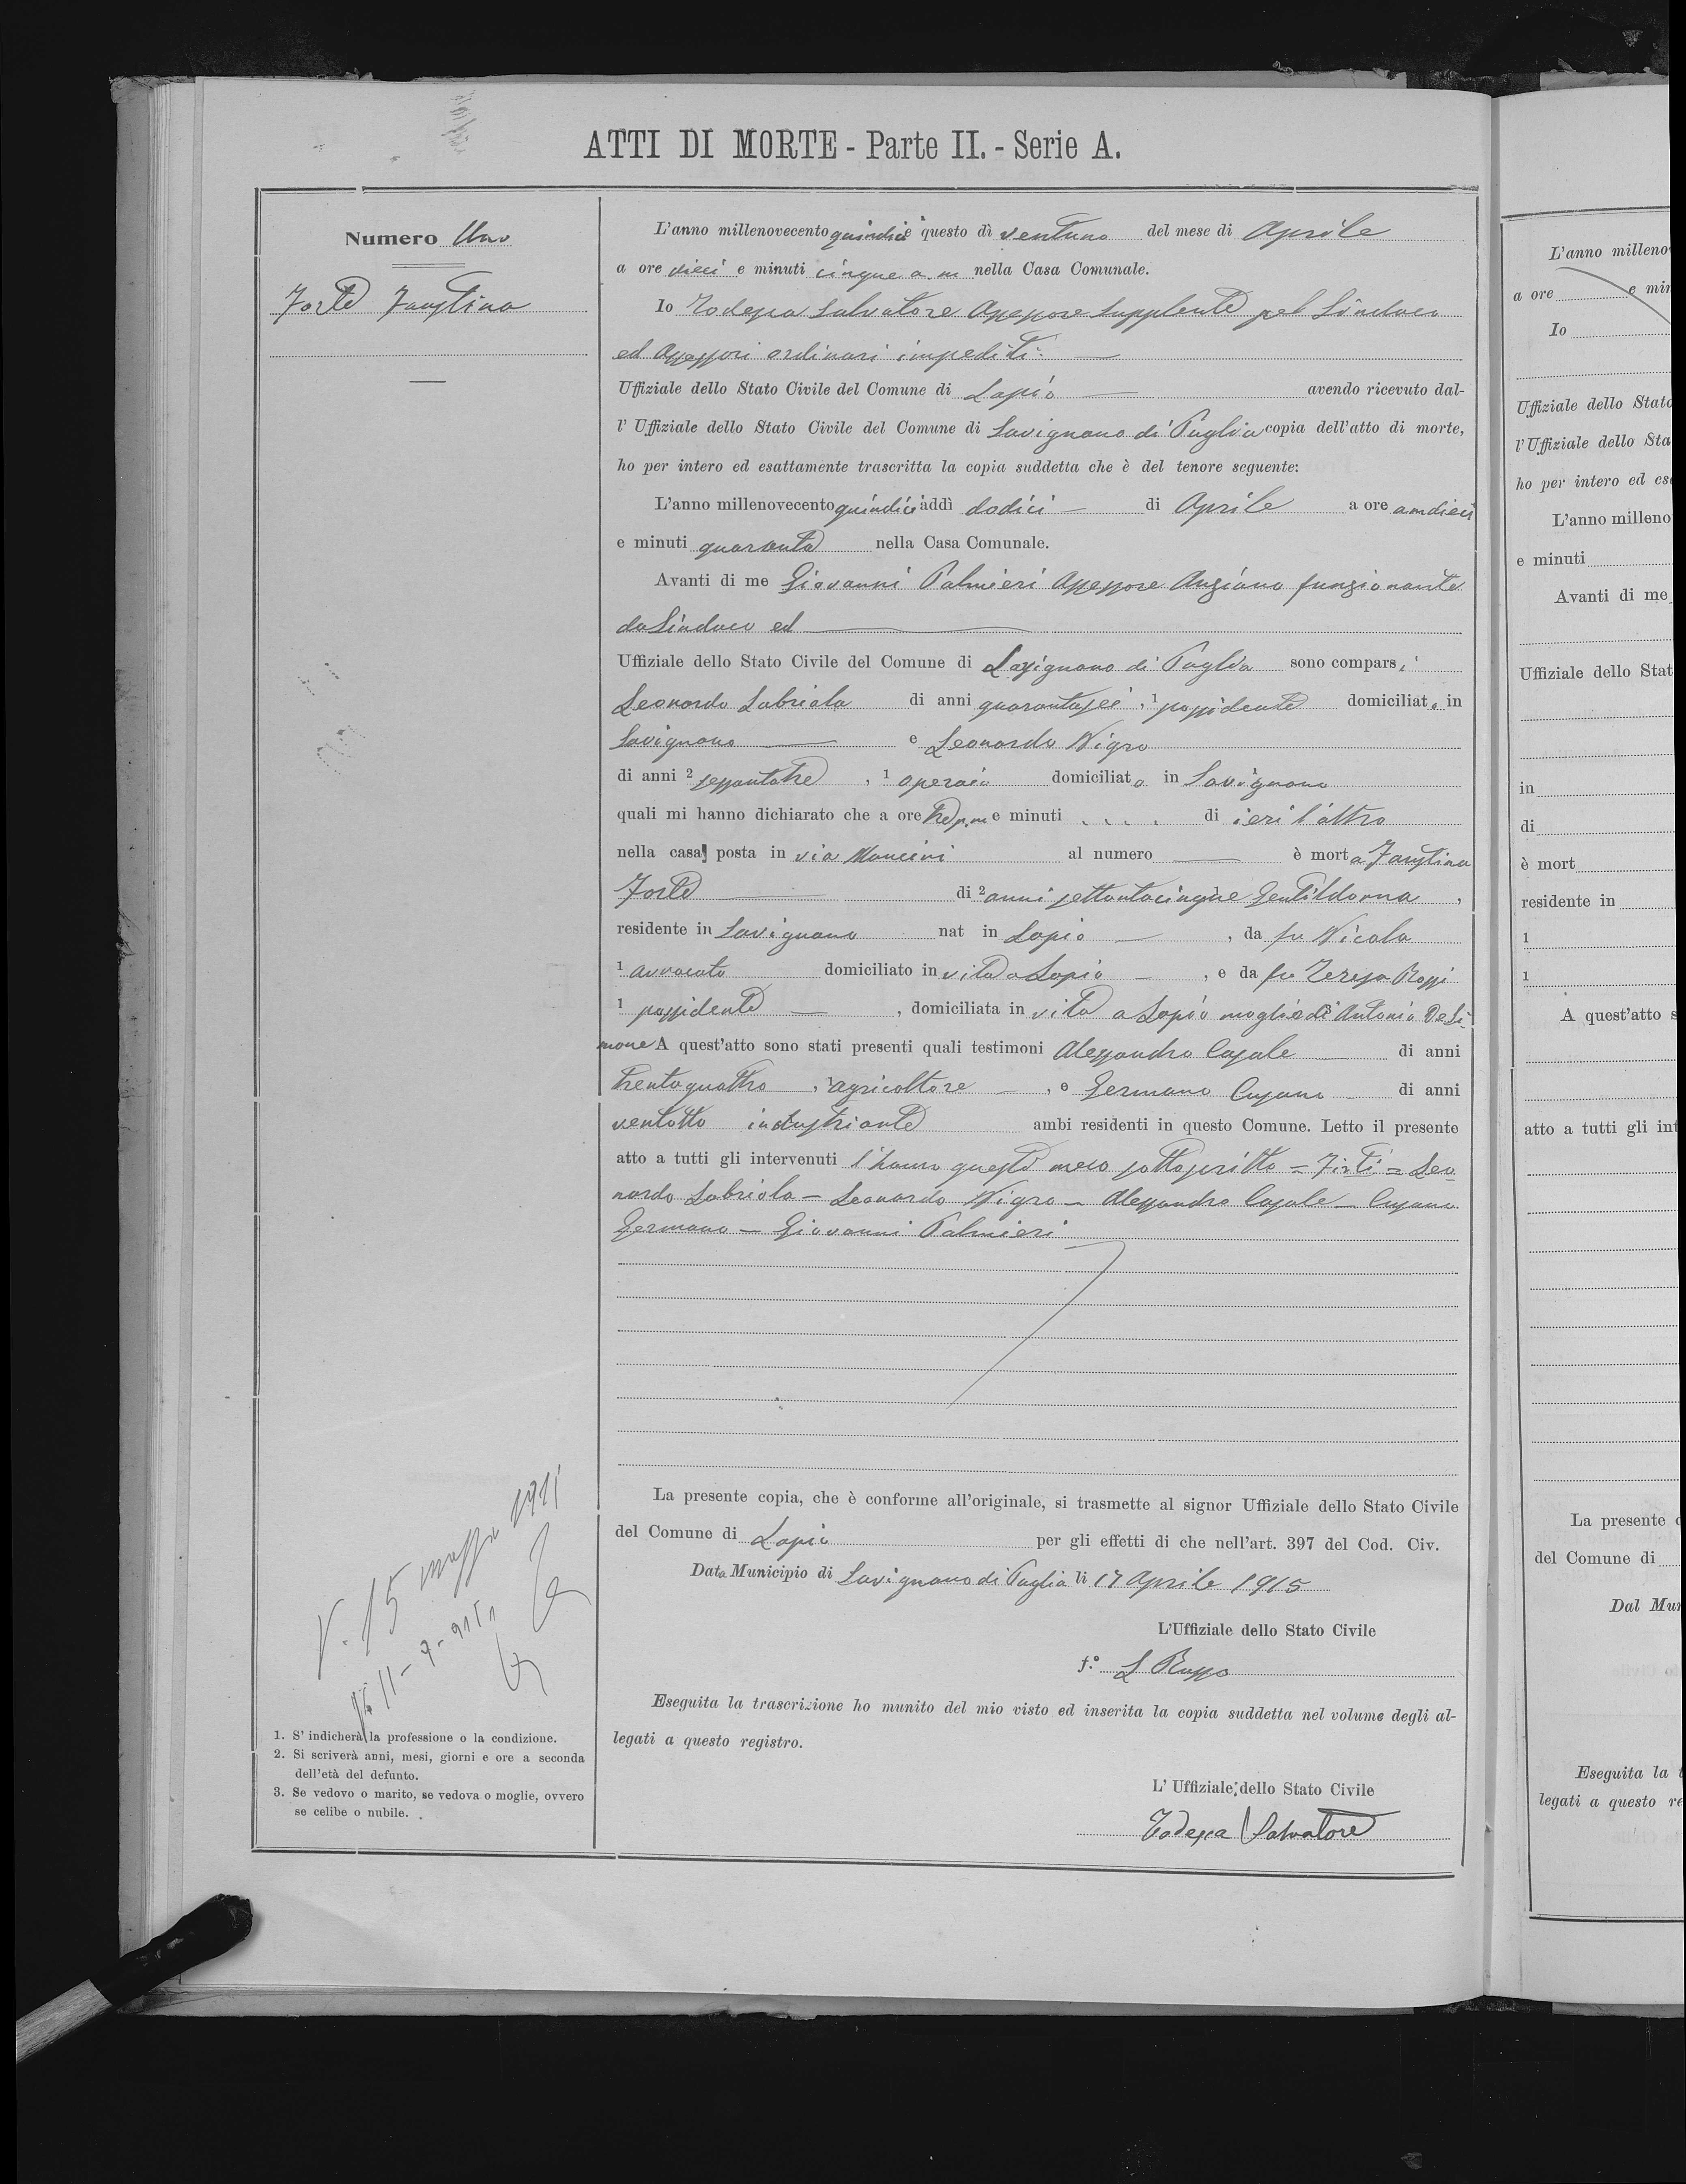 ATTI DI MORTE - Parte II. - Serie A.
Numero Uno
Forte Faustina
L'anno millenovecento quindici questo dì ventuno del mese di Aprile
a ore dieci e minuti cinque a. m nella Casa Comunale.
Io Todesca Salvatore Assessore Supplente pel Sindaco
ed Assessori ordinari impediti
Uffiziale dello Stato Civile del Comune di Lapio avendo ricevuto dal-
l' Uffiziale dello Stato Civile del Comune di Savignano di Puglia copia dell'atto di morte,
ho per intero ed esattamente trascritta la copia suddetta che è del tenore seguente:
L'anno millenovecento quindici addì dodici di Aprile a ore am dieci
e minuti quaranta nella Casa Comunale.
Avanti di me Giovanni Palmieri Assessore Anziano funzionante
da Sindaco ed
Uffiziale dello Stato Civile del Comune di Savignano di Puglia sono comparsi
Leonardo Labriola di anni quarantasei, 1 possidente domiciliato in
Savignano e Leonardo Nigro
di anni 2 sessantatre, 1 operaio domiciliato in Savignano
quali mi hanno dichiarato che a ore tre p.m e minuti . . . . di ieri l'altro
nella casa posta in via Mancini al numero — è morta Faustina
Forte di 2 anni settantacinque Gentildonna,
residente in Savignano nat in Lapio —, da fu Nicola
1 avvocato domiciliato in vita a Lapio —, e da fu Teresa Rossi
1 possidente —, domiciliata in vita a Lapio moglie di Antonio De Si-
mone A quest'atto sono stati presenti quali testimoni Alessandro Casale di anni
trentaquattro, 1 agricoltore —, e Germano Cusano di anni
ventotto industriante ambi residenti in questo Comune. Letto il presente
atto a tutti gli intervenuti l'hanno questi meco sottoscritto = Firti = Leo
nardo Labriola — Leonardo Nigro — Alessandro Casale — Cusano
Germano — Giovanni Palmieri
La presente copia, che è conforme all'originale, si trasmette al signor Uffiziale dello Stato Civile
del Comune di Lapio per gli effetti di che nell'art. 397 del Cod. Civ.
Data Municipio di Savignano di Puglia li 17 Aprile 1915
L'Uffiziale dello Stato Civile
f.º L Russo
Eseguita la trascrizione ho munito del mio visto ed inserita la copia suddetta nel volume degli al-
legati a questo registro.
L' Uffiziale dello Stato Civile
Todesca Salvatore
V. 15
11-7-915
1. S' indicherà la professione o la condizione.
2. Si scriverà anni, mesi, giorni e ore a seconda
dell'età del defunto.
3. Se vedovo o marito, se vedova o moglie, ovvero
se celibe o nubile.
L'anno milleno
a ore e min
Io
Uffiziale dello Stato
l'Uffiziale dello Sta
ho per intero ed es
L'anno milleno
e minuti
Avanti di me
Uffiziale dello Stat
in
di
è mort
residente in
1
1
A quest'atto s
atto a tutti gli int
La presente c
del Comune di
Dal Mun
Eseguita la t
legati a questo re